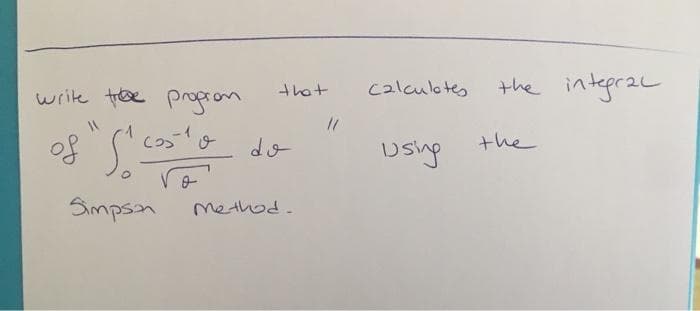 write the program that calculates the integral
of "∫₀¹ cos⁻¹θ / √θ dθ" using the
Simpson method.